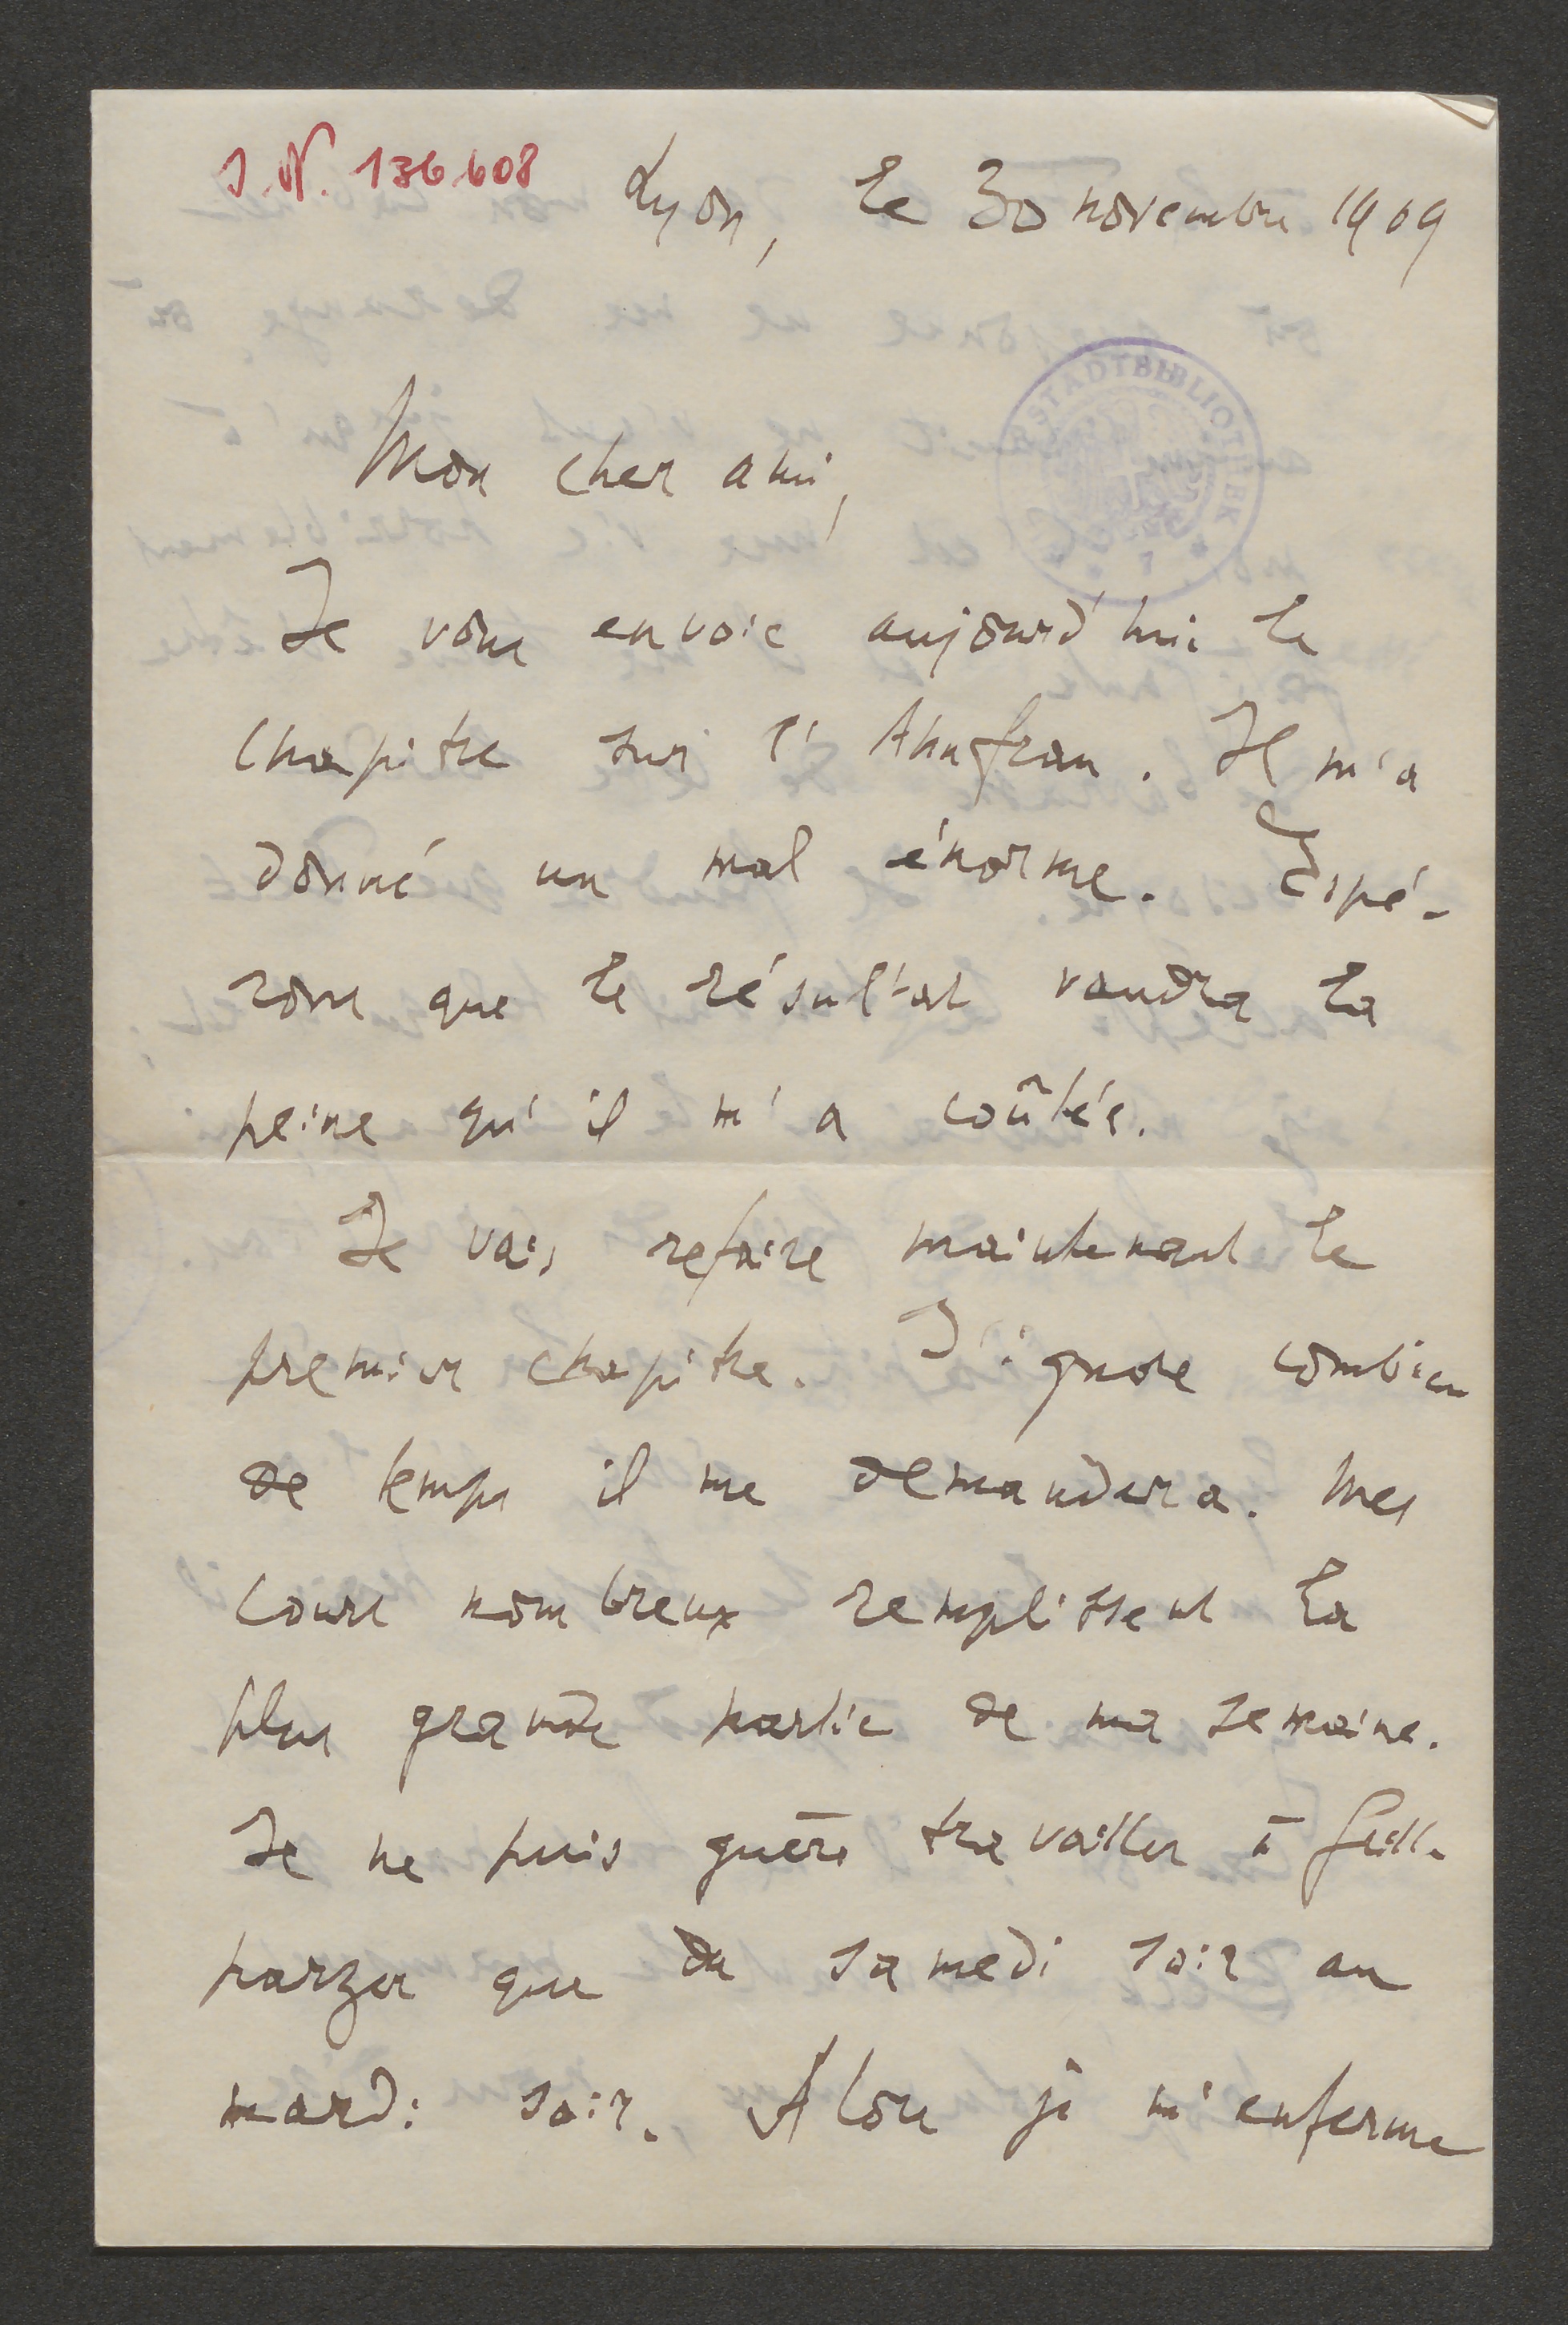 I. N. 136.608
Lyon, le 30 novembre 1909
STADTBIBLIOTHEK
1
Mon cher ami,
Je vous envoie aujourd'hui le
chapitre sur l'Ahnfrau. Il m'a
donné un mal énorme. Espé-
rons que le résultat vaudra la
peine qu'il m'a coûtée.
Je vais refaire maintenant le
premier chapitre. J'ignore combien
de temps il me demandera. Mes
cours nombreux remplissent la
plus grande partie de ma semaine.
Je ne puis guère travailler à Grill-
parzer que du samedi soir au
mardi soir. Alors je m'enferme